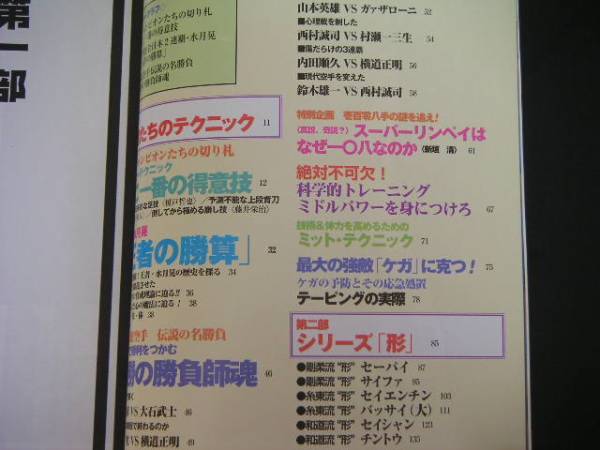 第一部
チャンピオンたちの切り札
の得意技
全日本2連覇・水月晃
の勝算」
伝説の名勝負
勝負師魂
たちのテクニック 11
ンピオンたちの切り札
テクニック
一番の得意技 12
な足技（榎戸哲也）／予測不能な上段背刀
／倒してから極める崩し技（藤井栄治）
者の勝算」 32
！王者・水月晃の歴史を探る 34
させた
育成理論に迫る!! 36
心の魔法に迫る！ 38
・暴 38
空手 伝説の名勝負
勝利をつかむ
の勝負師魂 46
VS 大石武士 46
で終わるのか
VS 横道正明 49
山本英雄 VS ガァザローニ 52
■心理戦を制した
西村誠司 VS 村瀬一三生 54
■傷だらけの3連覇
内田順久 VS 横道正明 56
■現代空手を変えた
鈴木雄一 VS 西村誠司 58
特別企画 壱百零八手の謎を追え！
（真説、奇説？）スーパーリンペイは
なぜ一〇八なのか（新垣 清） 61
絶対不可欠！
科学的トレーニング
ミドルパワーを身につけろ 67
技術＆体力を高めるための
ミット・テクニック 71
最大の強敵「ケガ」に克つ！ 75
ケガの予防とその応急処置
テーピングの実際 78
第二部
シリーズ「形」 85
●剛柔流“形” セーパイ 87
●剛柔流“形” サイファ 95
●糸東流“形” セイエンチン 103
●糸東流“形” バッサイ（大） 111
●和道流“形” セイシャン 123
●和道流“形” チントウ 135